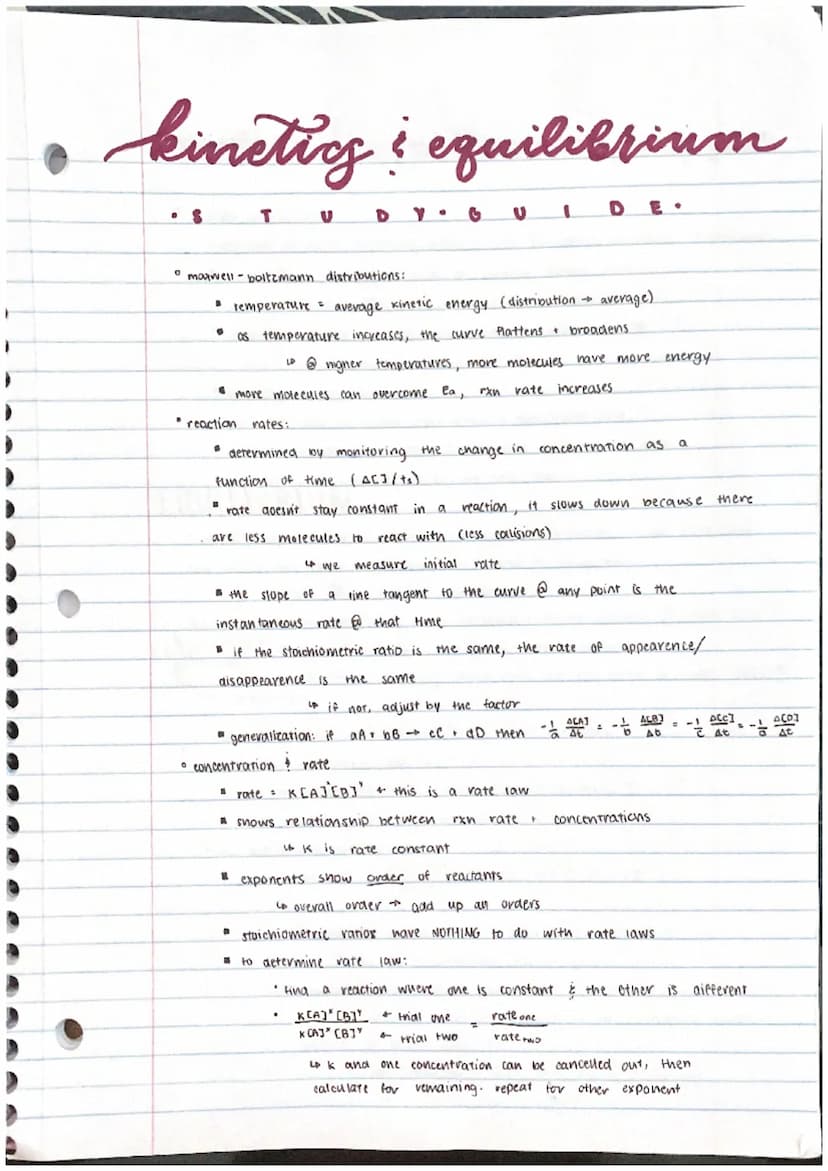 kinetics & equilibrium
• STUDY • GUIDE •
° maxwell-boltzmann distributions:
▪ temperature = average kinetic energy (distribution → average)
▪ as temperature increases, the curve flattens + broadens
↳ @ higher temperatures, more molecules have more energy
▪ more molecules can overcome Ea, rxn rate increases
° reaction rates:
▪ determined by monitoring the change in concentration as a
function of time (Δ[]/ts)
▪ rate doesn't stay constant in a reaction, it slows down because there
are less molecules to react with (less collisions)
↳ we measure initial rate
▪ the slope of a line tangent to the curve @ any point is the
instantaneous rate @ that time
▪ if the stoichiometric ratio is the same, the rate of appearence/
disappearence is the same
↳ if not, adjust by the factor
▪ generalization: if aA + bB → cC + dD then -1/a Δ[A]/Δt = -1/b Δ[B]/Δt = -1/c Δ[C]/Δt = -1/d Δ[D]/Δt
° concentration & rate
▪ rate = K[A]ˣ[B]ʸ ← this is a rate law
▪ shows relationship between rxn rate + concentrations
↳ K is rate constant
▪ exponents show order of reactants
↳ overall order → add up all orders
▪ stoichiometric ratios have NOTHING to do with rate laws
▪ to determine rate law:
• find a reaction where one is constant & the other is different
• K[A]ˣ[B]ʸ ← trial one = rate one
K[A]ˣ[B]ʸ ← trial two rate two
↳ K and one concentration can be cancelled out, then
calculate for remaining. repeat for other exponent